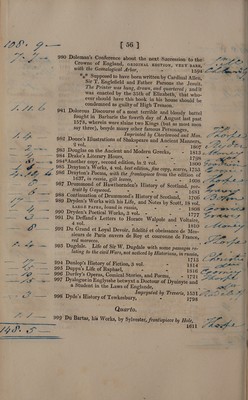 [ 56 ]
980 Doleman's Conference about the next Succession to the
Crowne of England, ORIGINAL EDITION, VERY RARE,
with the Genealogical Arbor, 1594
*** Supposed to have been written by Cardinal Allen,
Sir T. Englefield and Father Parsons the Jesuit.
The Printer was hung, drawn, and quartered; and it
was enacted by the 35th of Elizabeth, that who-
ever should have this book in his house should be
condemned as guilty of High Treason.
981 Dolorous Discourse of a most terrible and bloudy battel
fought in Barbarie the fourth day of August last past
1578, wherein were slaine two Kings (but as most men
say three), besyde many other famous Personages.
Imprinted by Charlewood and Man.
982 Douce's Illustrations of Shakspeare and Ancient Manners,
2 vol. 1807
983 Douglas on the Modern Greeks, 1813
984 Drake's Literary Hours, 1798
984* Another copy, second edition, in 2 vol. 1800
985 Drayton's Works, 4 vol. best edition, fine copy, scarce, 1753
986 Drayton's Poems, with the frontispiece from the edition of
1637, in russia, gilt leaves, 1608
987 Drummond of Hawthornden's History of Scotland, por-
trait by Gaywood, 1655
988 Continuation of Drummond's History of Scotland, 1706
989 Dryden's Works with his Life, and Notes by Scott, 18 vol.
LARGE PAPER, bound in russia, 1808
990 Dryden's Poetical Works, 3 vol. 1777
991 Du Deffand's Letters to Horace Walpole and Voltaire,
4 vol. 1810
992 Du Grand et Loyal Devoir, fidelité et obeissance de Mes-
sieurs de Paris envers de Roy et couronne de France,
red morocco. 1565
993 Dugdale. Life of Sir W. Dugdale with some passages re-
lating to the civil Wars, not noticed by Historians, in russia,
1713
994 Dunlop's History of Fiction, 3 vol. 1814
995 Duppa's Life of Raphael, 1816
996 Durfey's Opera, Comical Stories, and Poems, 1721
997 Dyalogue in Englysshe betwyxt a Doctour of Dyuinyte and
a Student in the Laws of Englonde,
Imprynted by Treverys, 1531
998 Dyde's History of Tewkesbury, 1798
Quarto.
999 Du Bartas, his Works, by Sylvester, frontispiece by Hole,
1611
148.5—